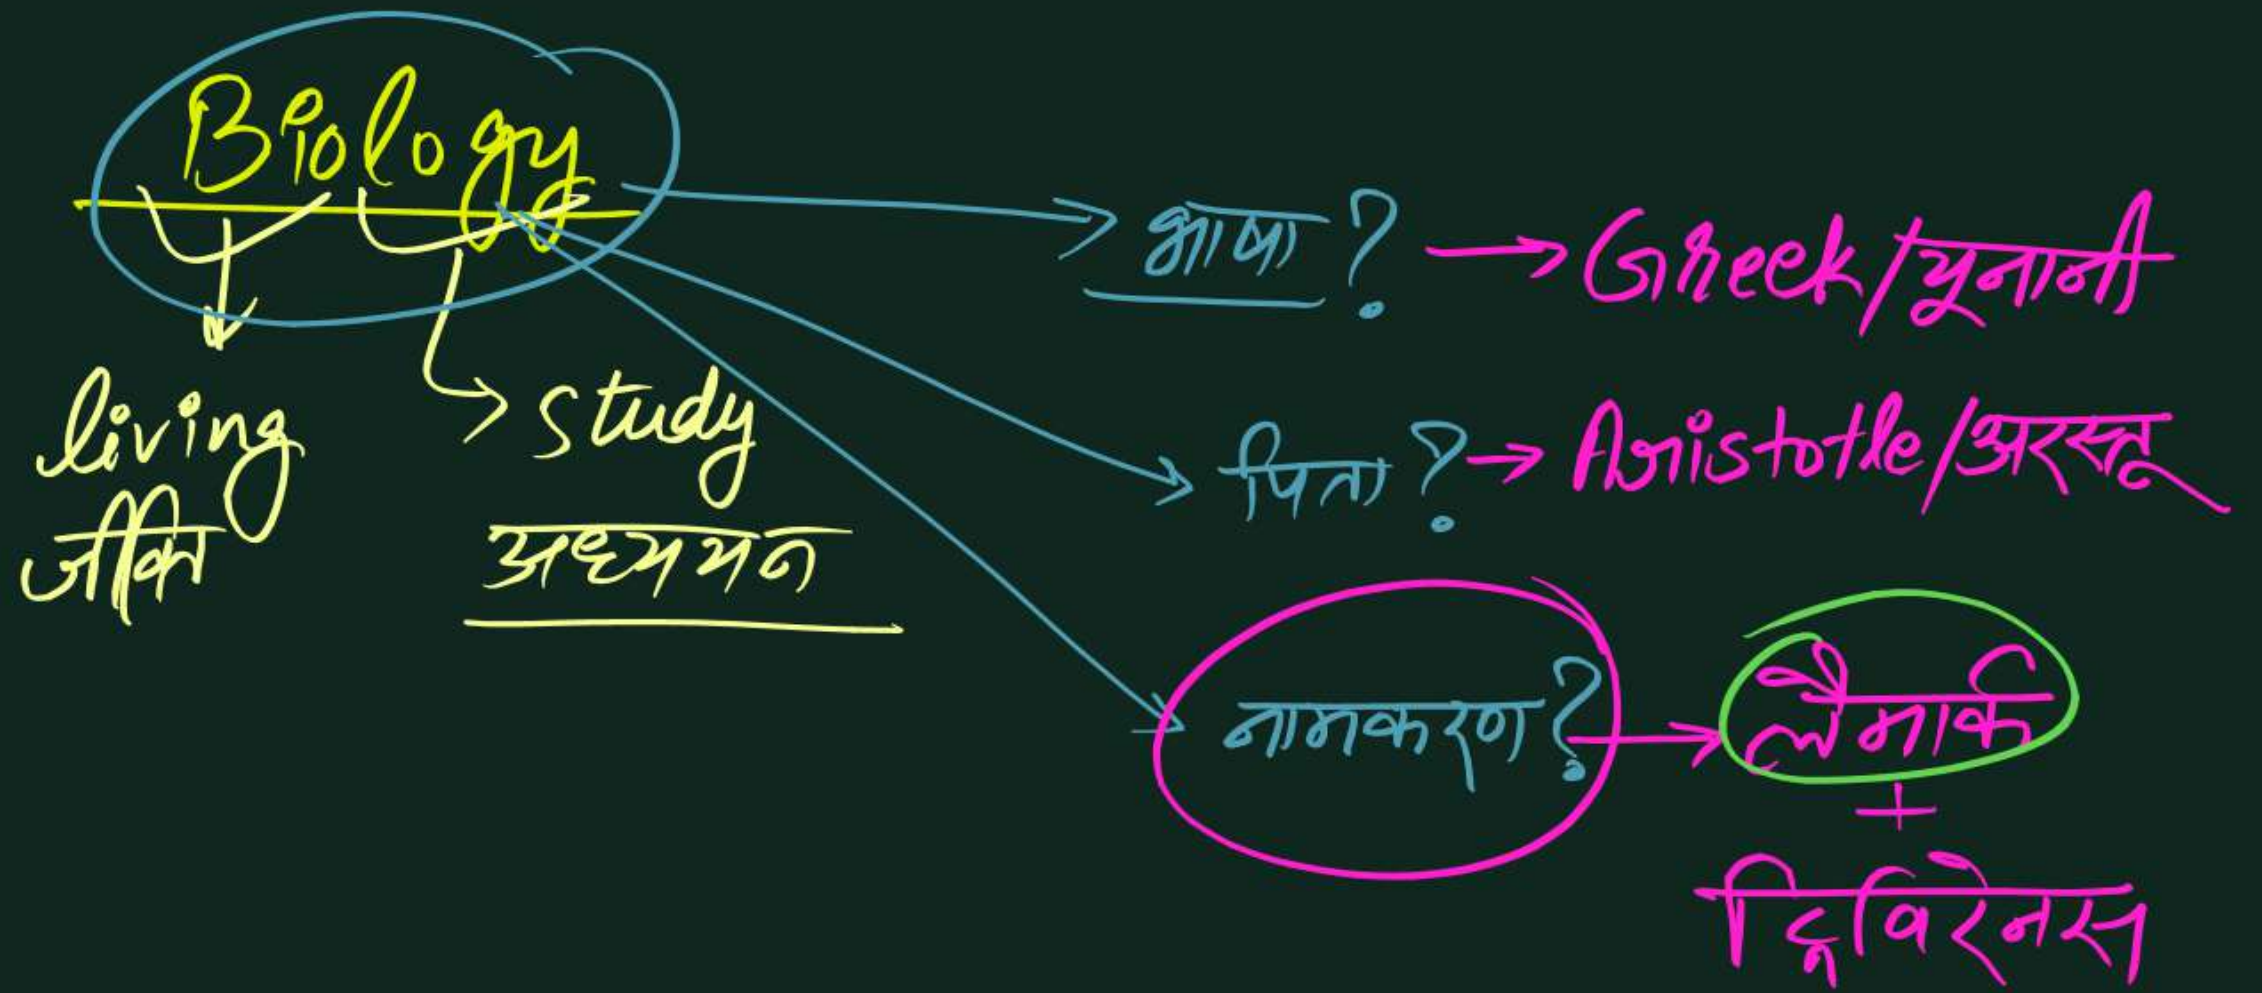 Biology
living
जीवित
study
अध्ययन
भाषा? → Greek/यूनानी
पिता? → Aristotle/अरस्तू
नामकरण? → लैमार्क
+
ट्रिविरेनस